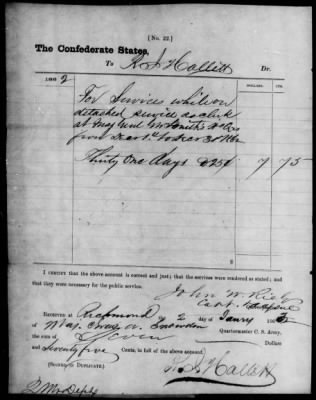 [No. 22.]
The Confederate States,
To R. S. Hallett Dr.
DOLLARS. CTS.
1862
For Services whilst on
detached service as clerk
at Maj Genl Smith's
from Decr 1st to Decr 31st
Thirty One days @ 25¢ 7 75
I certify that the above account is correct and just; that the services were rendered as stated; and
that they were necessary for the public service.
John W. Riely
Capt.
Received at Richmond 2 day of Janry 1863
of Maj. Quartermaster C. S. Army,
the sum of Seven Dollars
and Seventy five Cents, in full of the above account.
(Signed in Duplicate.)
R. S. Hallett